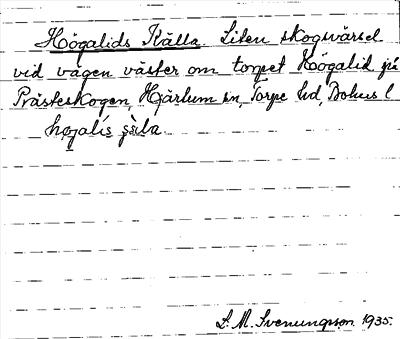 Högalids Källa. Liten skogsvärsel
vid vägen väster om torpet Högalid på
Prästeskogen, Hjärtum sn, Torpe hd, Bohus l
högalis
S. M. Svenungsson 1935.